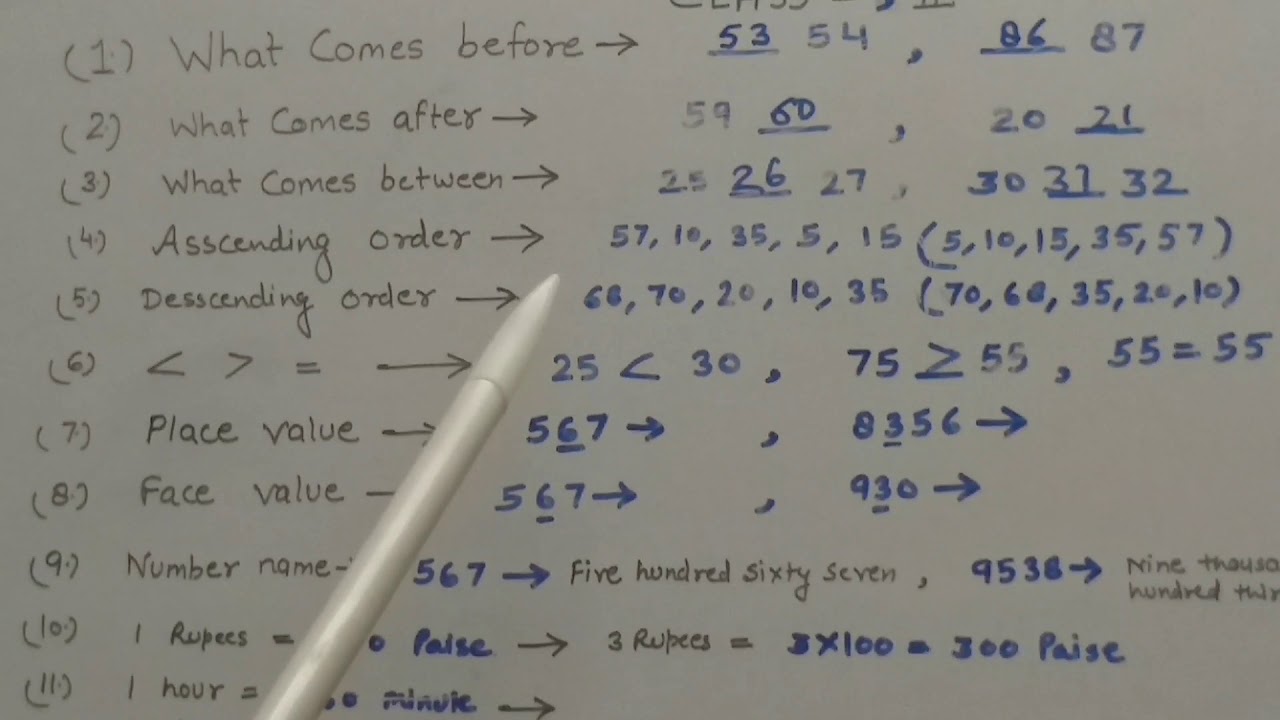 (1.) What Comes before → 53 54 , 86 87
(2.) What Comes after → 59 60 , 20 21
(3.) What Comes between → 25 26 27 , 30 31 32
(4.) Asscending order → 57, 10, 35, 5, 15 (5,10,15,35,57)
(5.) Desscending order → 68, 70, 20, 10, 35 (70,68,35,20,10)
(6.) < > = → 25 < 30 , 75 ≥ 55 , 55 = 55
(7.) Place value → 567 → , 8356 →
(8.) Face value 567 → , 930 →
(9.) Number name- 567 → Five hundred sixty seven , 9538 → Nine
hundred
(10.) 1 Rupees = 0 Paise → 3 Rupees = 3×100 = 300 Paise
(11.) 1 hour = 0 minute →